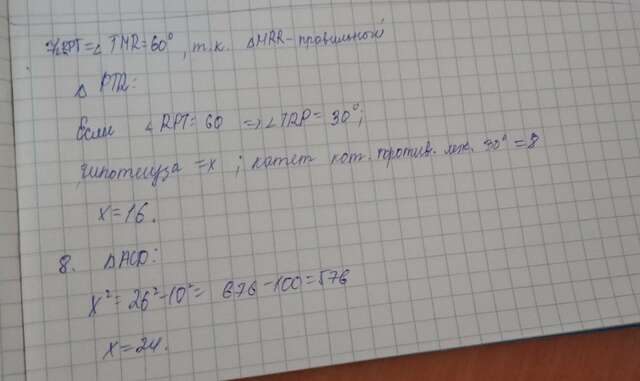 ∠RPT = ∠TMR = 60°, т.к. ΔMRR - правильный
Δ PTR:
Если ∠RPT = 60 => ∠TRP = 30°;
гипотенуза = x ; катет кот. против. леж. 30° = 8
x = 16.
8. ΔACD:
x² = 26² - 10² = 676 - 100 = 576
x = 24.